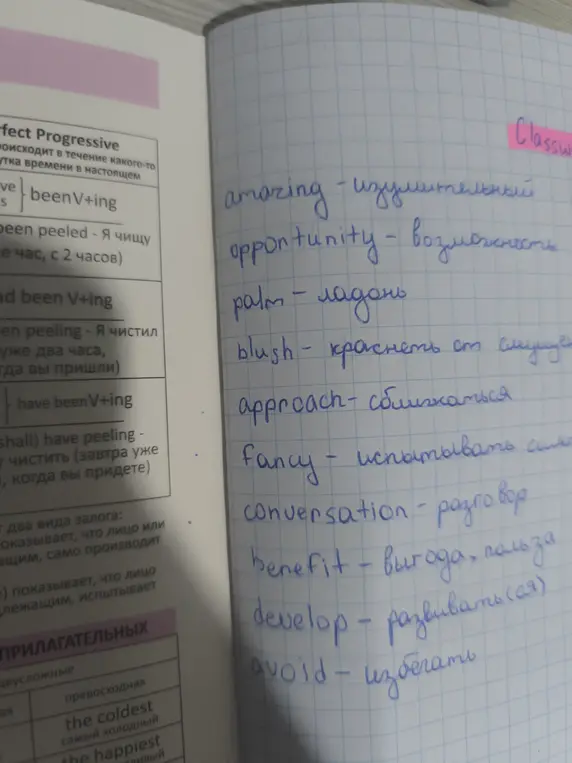 rfect Progressive
роисходит в течение какого-то
утка времени в настоящем
ve
s } beenV+ing
been peeled - Я чищу
е час, с 2 часов)
ad been V+ing
en peeling - Я чистил
уже два часа,
гда вы пришли)
} have beenV+ing
shall) have peeling -
у чистить (завтра уже
, когда вы придете)
два вида залога:
оказывает, что лицо или
ащим, само производит
) показывает, что лицо
длежащим, испытывает
ПРИЛАГАТЕЛЬНЫХ
двусложные
превосходная
the coldest
самый холодный
the happiest
Classw
amazing - изумительный
opportunity - возможность
palm - ладонь
blush - краснеть от смуще
approach - сближаться
fancy - испытывать
conversation - разговор
benefit - выгода, польза
develop - развивать(ся)
avoid - избегать